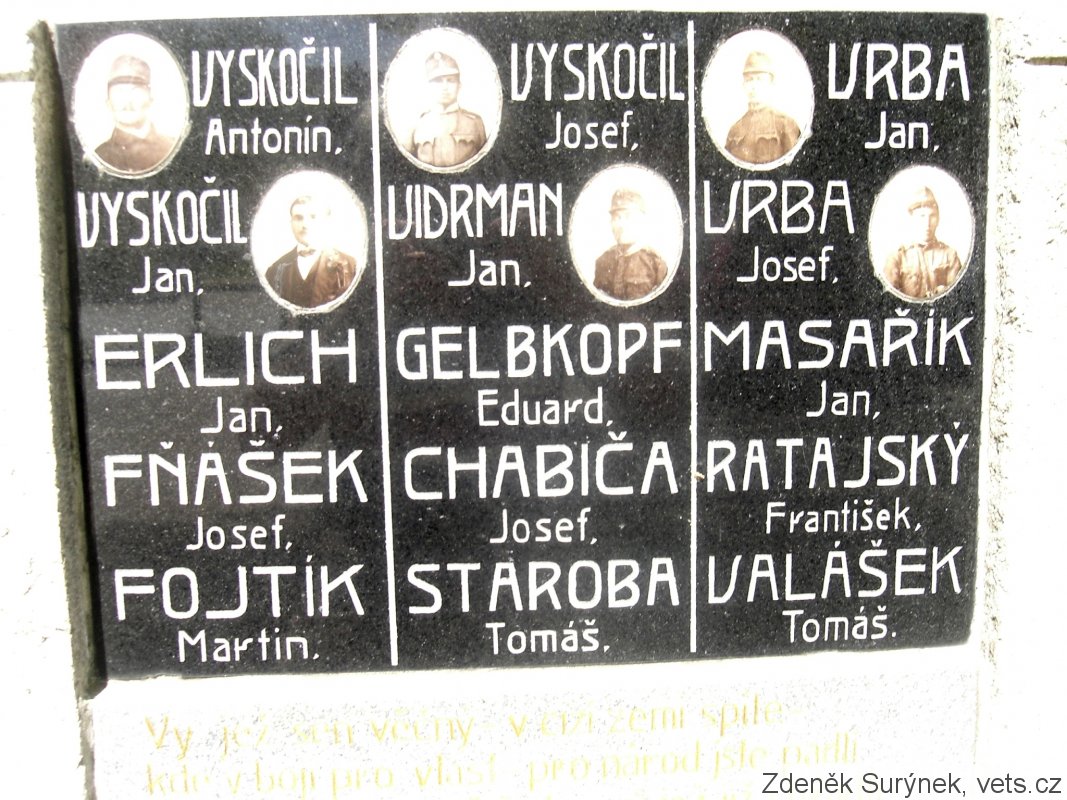 VYSKOČIL
Antonín,
VYSKOČIL
Jan,
ERLICH
Jan,
FŇAŠEK
Josef,
FOJTÍK
Martin.
VYSKOČIL
Josef,
VIDRMAN
Jan,
GELBKOPF
Eduard,
CHABIČA
Josef,
STAROBA
Tomáš.
VRBA
Jan,
VRBA
Josef,
MASAŘÍK
Jan,
RATAJSKÝ
František,
VALÁŠEK
Tomáš.
Vy, jež sen věčný v cizí zemi spíte
kde v boji pro vlast, pro národ jste padli
Zdeněk Surýnek, vets.cz